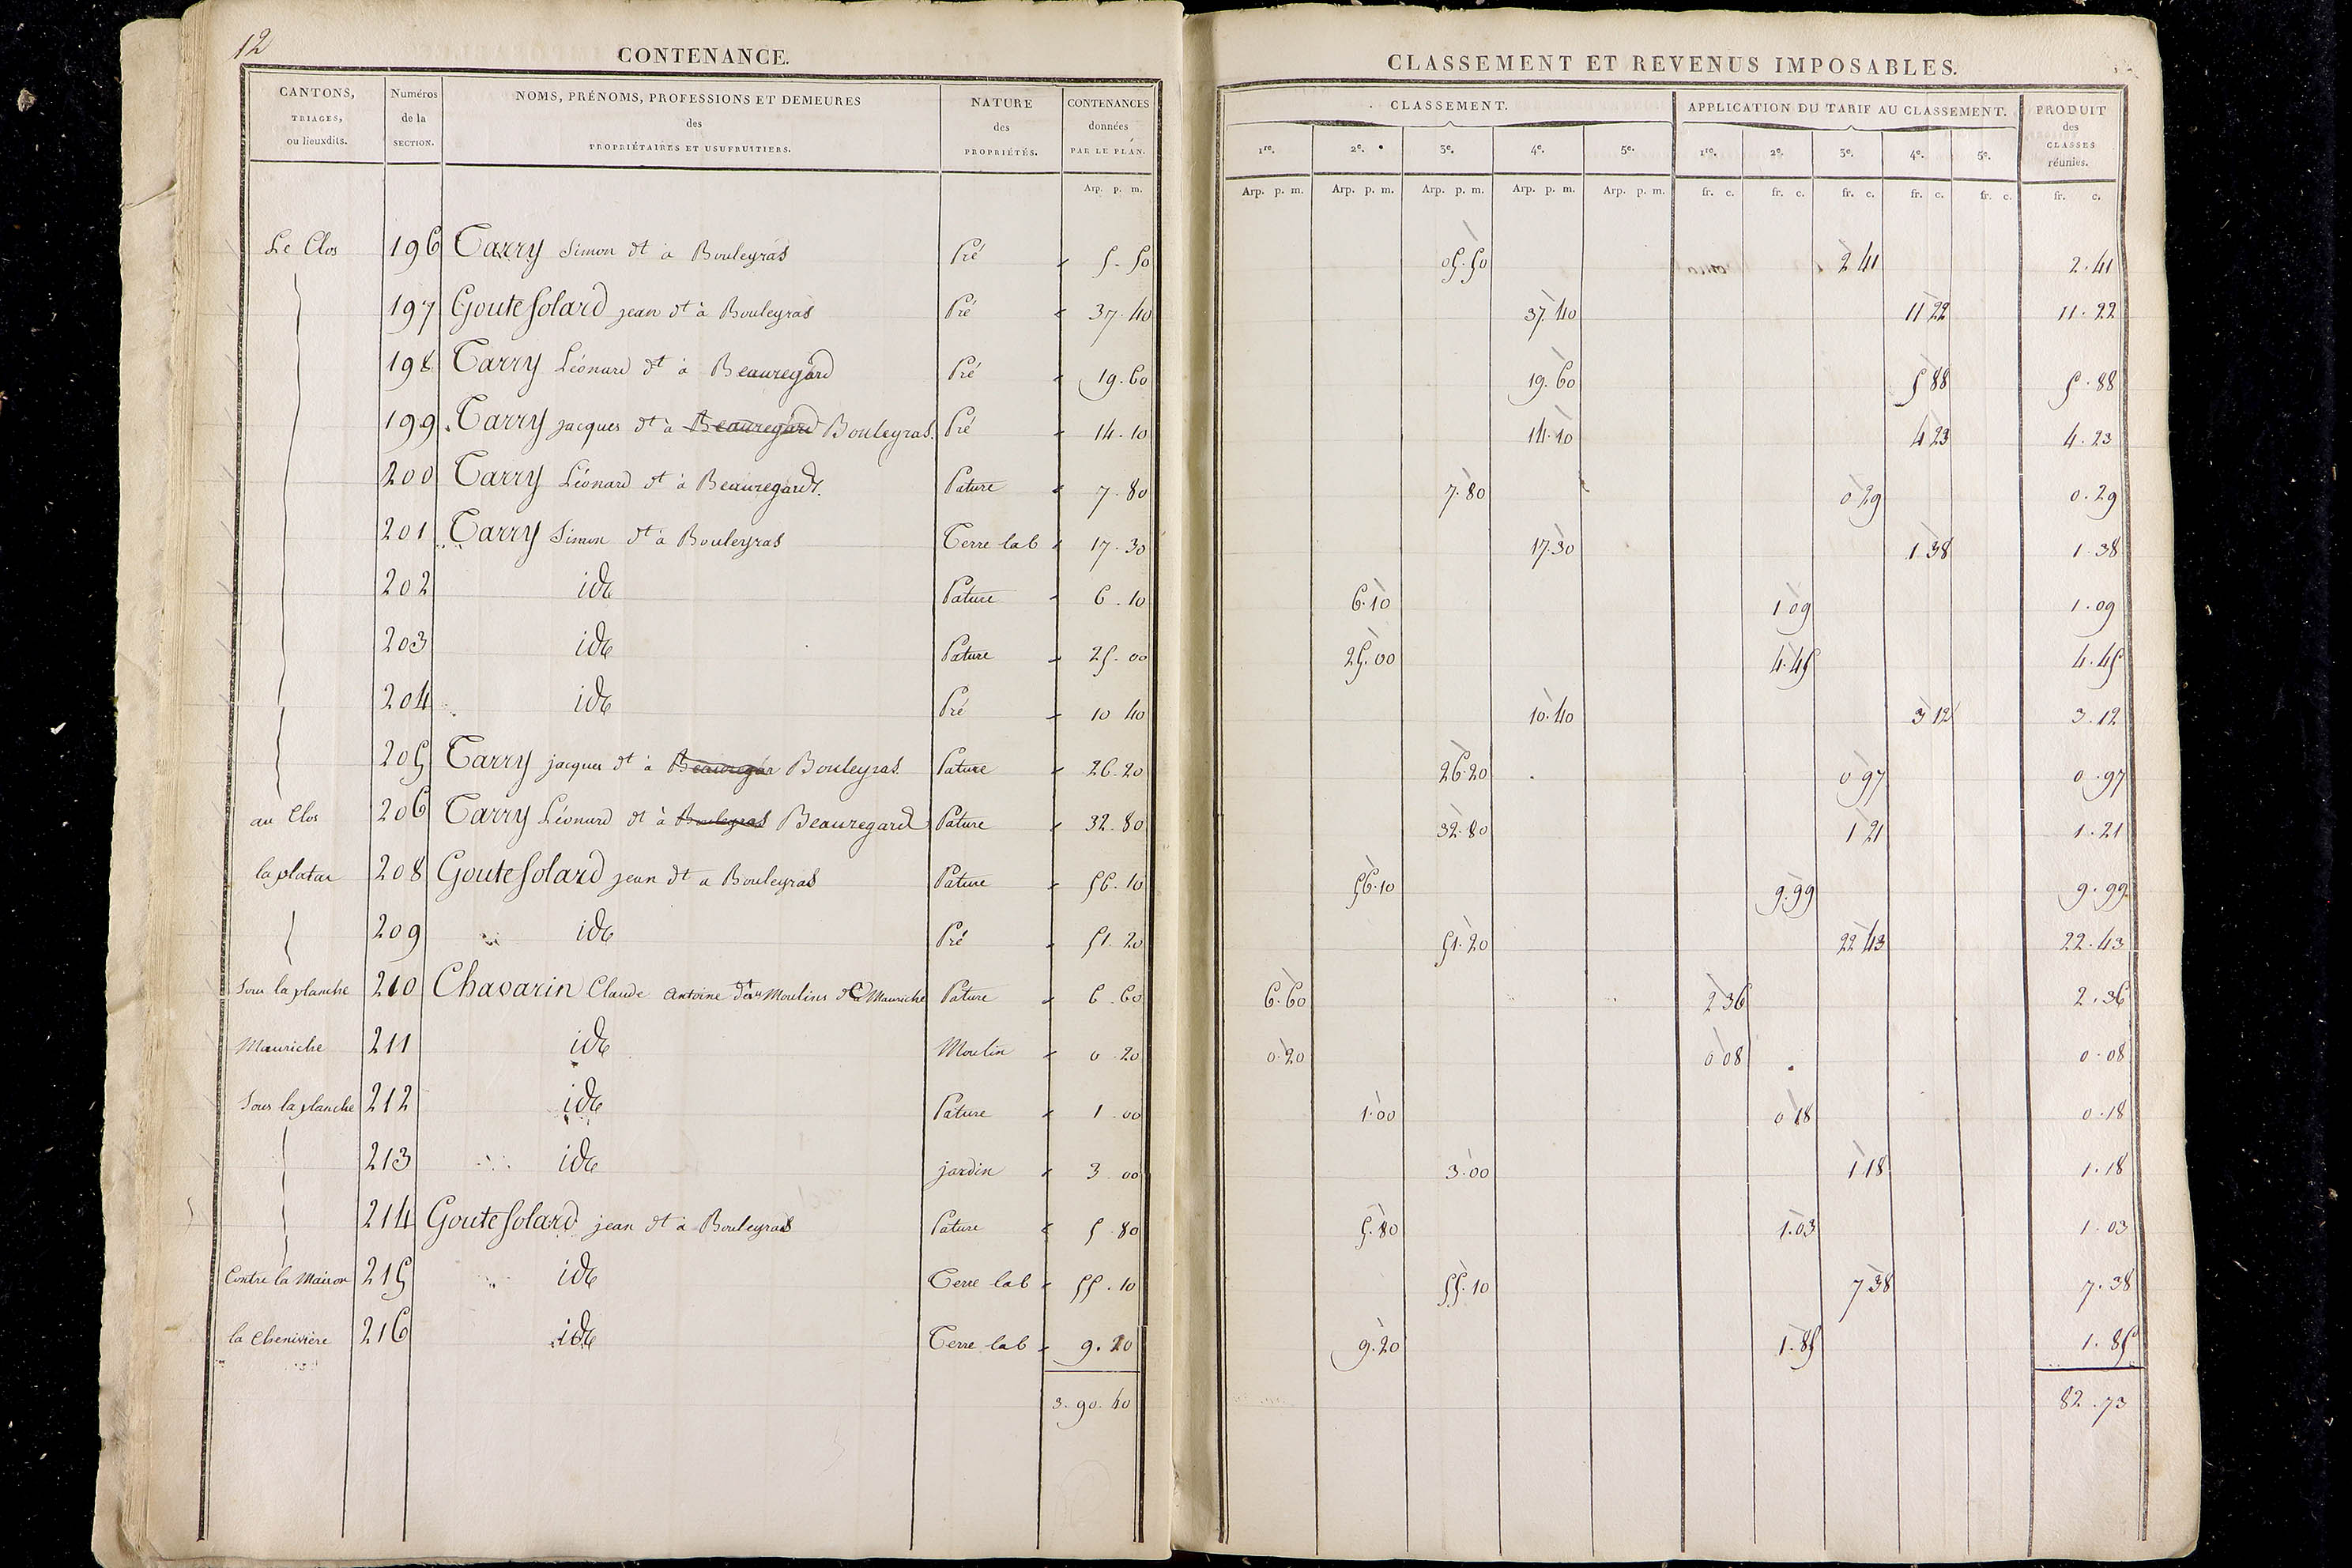 12
CONTENANCE.
CANTONS, TRIAGES, ou lieuxdits. Numéros de la SECTION. NOMS, PRÉNOMS, PROFESSIONS ET DEMEURES des PROPRIÉTAIRES ET USUFRUITIERS. NATURE des PROPRIÉTÉS. CONTENANCES données PAR LE PLAN.
Arp. p. m.
Le Clos 196 Tarry Simon dt à Bouleyras Pré 5. 50
197 Goutesolard jean dt à Bouleyras Pré 37. 40
198 Tarry Léonard dt à Beauregard Pré 19. 60
199 Tarry jacques dt à Beauregard Bouleyras. Pré 14. 10
200 Tarry Léonard dt à Beauregard. Pature 7. 80
201 Tarry Simon dt à Bouleyras Terre lab 17. 30
202 ide Pature 6. 10
203 ide Pature 25. 00
204 ide Pré 10 40
205 Tarry jacques dt à Beauregar Bouleyras. Pature 26. 20
au Clos 206 Tarry Léonard dt à Bouleyras Beauregard Pature 32. 80
la platar 208 Goutesolard jean dt a Bouleyras Pature 56. 10
209 ide Pré 51. 20
Sous la planche 210 Chavarin Claude Antoine dt Moulins de Mauriche Pature 6. 60
Mauriche 211 ide Moulin 0. 20
Sous la planche 212 ide Pature 1. 00
213 ide jardin 3 00
214 Goutesolard jean dt à Bouleyras Pature 5 80
Contre la Maison 215 ide Terre lab 55. 10
la Chenivière 216 ide Terre lab 9. 20
3. 90. 40
CLASSEMENT ET REVENUS IMPOSABLES.
CLASSEMENT. APPLICATION DU TARIF AU CLASSEMENT. PRODUIT des CLASSES réunies.
1re. 2e. 3e. 4e. 5e. 1re. 2e. 3e. 4e. 5e.
Arp. p. m. Arp. p. m. Arp. p. m. Arp. p. m. Arp. p. m. fr. c. fr. c. fr. c. fr. c. fr. c. fr. c.
05. 50 2 41 2. 41
37. 40 11 22 11. 22
19. 60 5 88 5. 88
14. 10 4 23 4. 23
7. 80 0 29 0. 29
17. 30 1 38 1. 38
6. 10 1 09 1. 09
25. 00 4. 45 4. 45
10. 40 3 12 3. 12
26. 20 0 97 0. 97
32. 80 1 21 1. 21
56. 10 9. 99 9. 99
51. 20 22 43 22. 43
6. 60 2 36 2. 36
0. 20 0 08 0. 08
1. 00 0 18 0. 18
3. 00 1 18 1. 18
5. 80 1. 03 1. 03
55. 10 7 38 7. 38
9. 20 1. 85 1. 85
82. 73